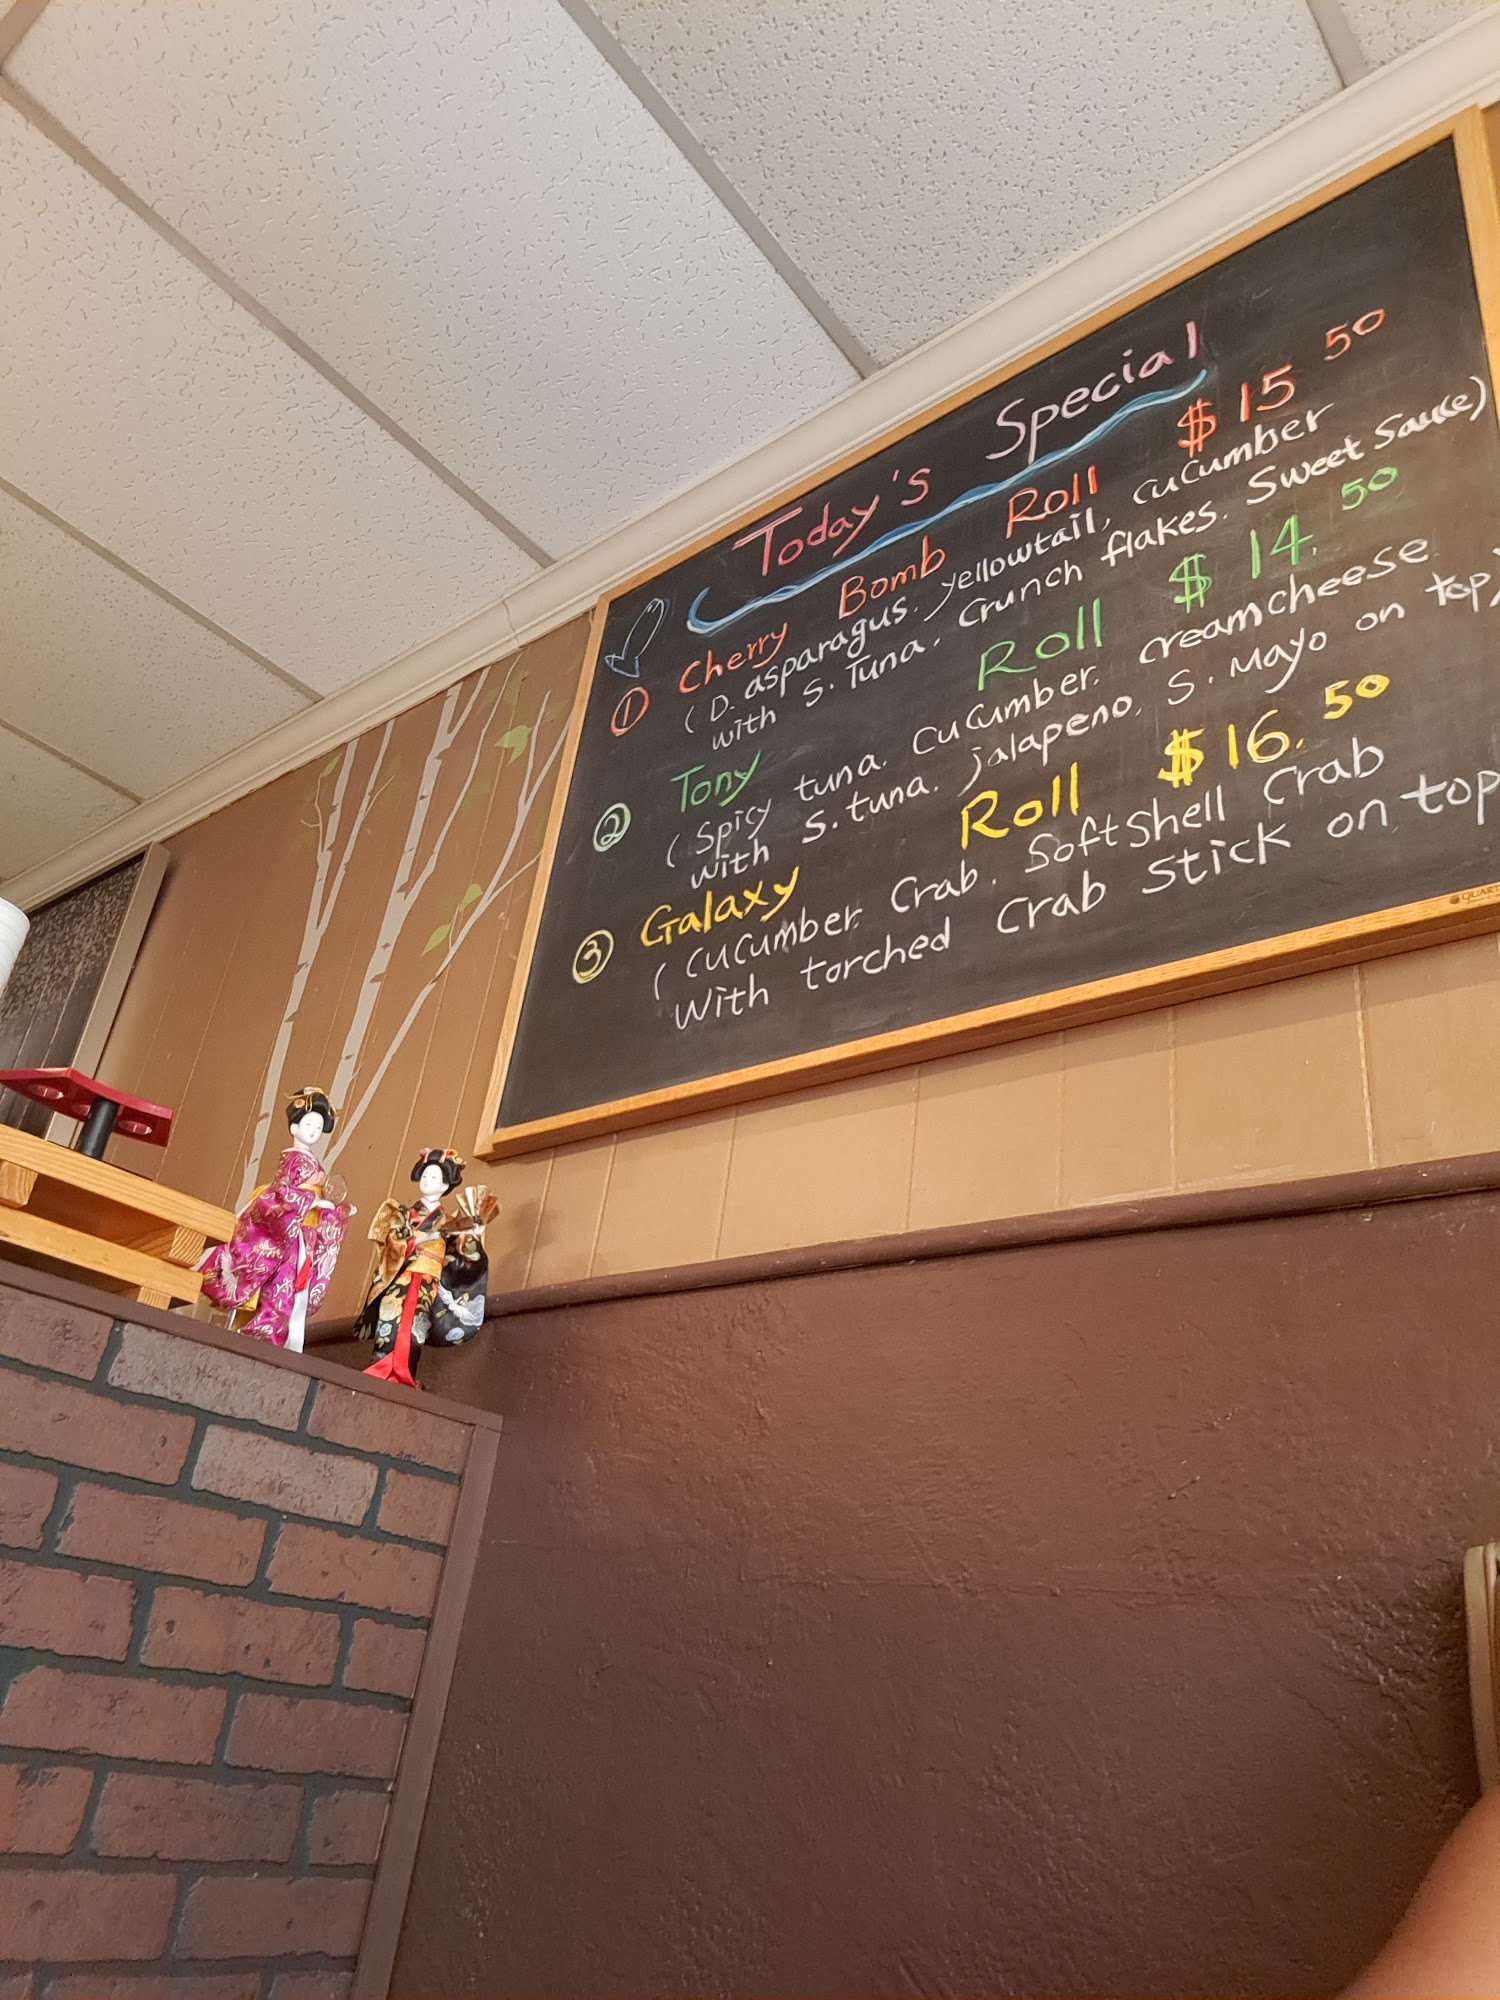 Today's Special
① Cherry Bomb Roll $15 50
( D. asparagus. yellowtail, cucumber
with S. Tuna. Crunch flakes. Sweet Sauce)
② Tony Roll $14. 50
( Spicy tuna. cucumber. creamcheese
with S. tuna. jalapeno. S. Mayo on top)
③ Galaxy Roll $16. 50
( cucumber. Crab. Soft Shell Crab
With torched Crab Stick on top